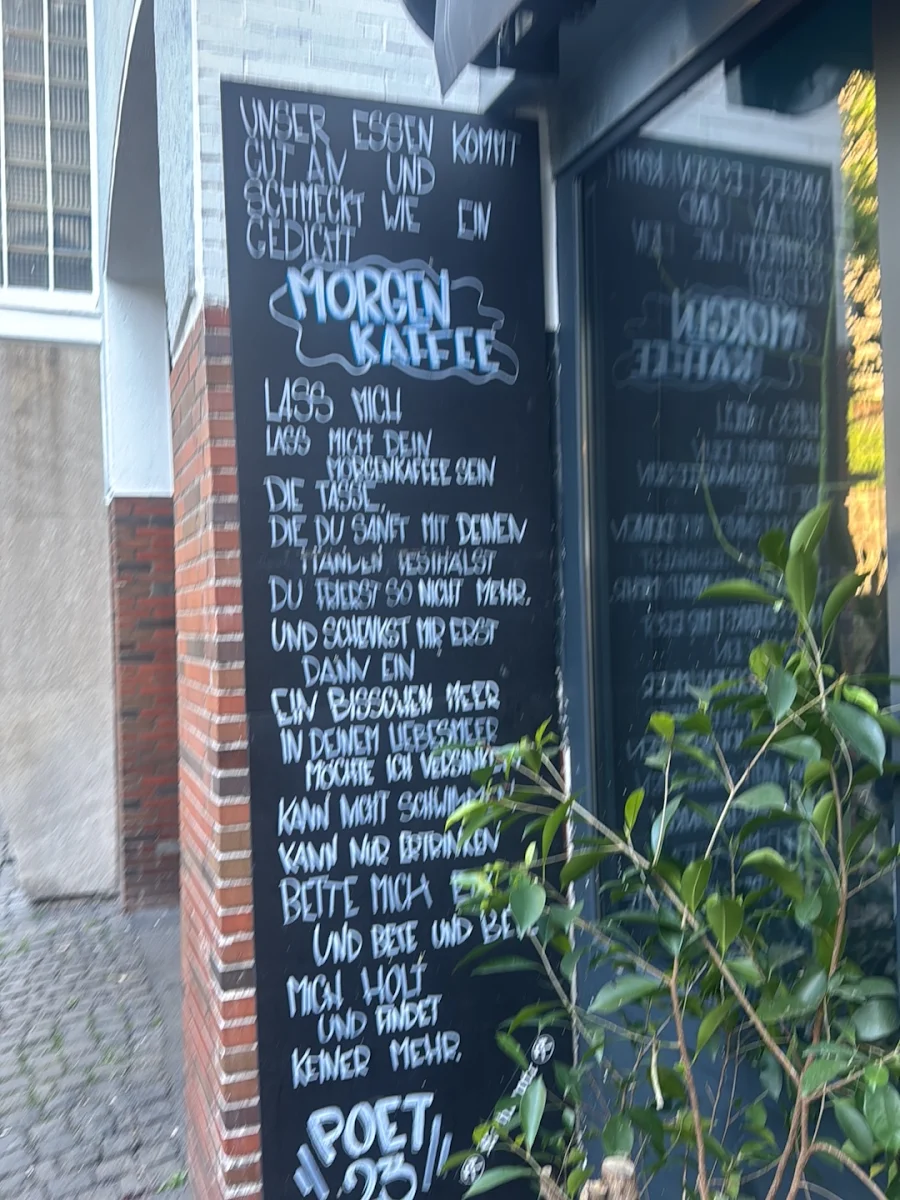 UNSER ESSEN KOMMT
GUT AN UND
SCHMECKT WIE EIN
GEDICHT
MORGEN
KAFFEE
LASS MICH
LASS MICH DEIN
MORGENKAFFEE SEIN
DIE TASSE,
DIE DU SANFT MIT DEINEN
HÄNDEN FESTHÄLST
DU FRIERST SO NICHT MEHR,
UND SCHENKST MIR ERST
DANN EIN
EIN BISSCHEN MEER
IN DEINEM LIEBESMEER
MÖCHTE ICH VERSINKEN
KANN NICHT SCHWIMMEN
KANN NUR ERTRINKEN
BETTE MICH
UND BETE UND
MICH HOLT
UND FINDET
KEINER MEHR.
POET
23